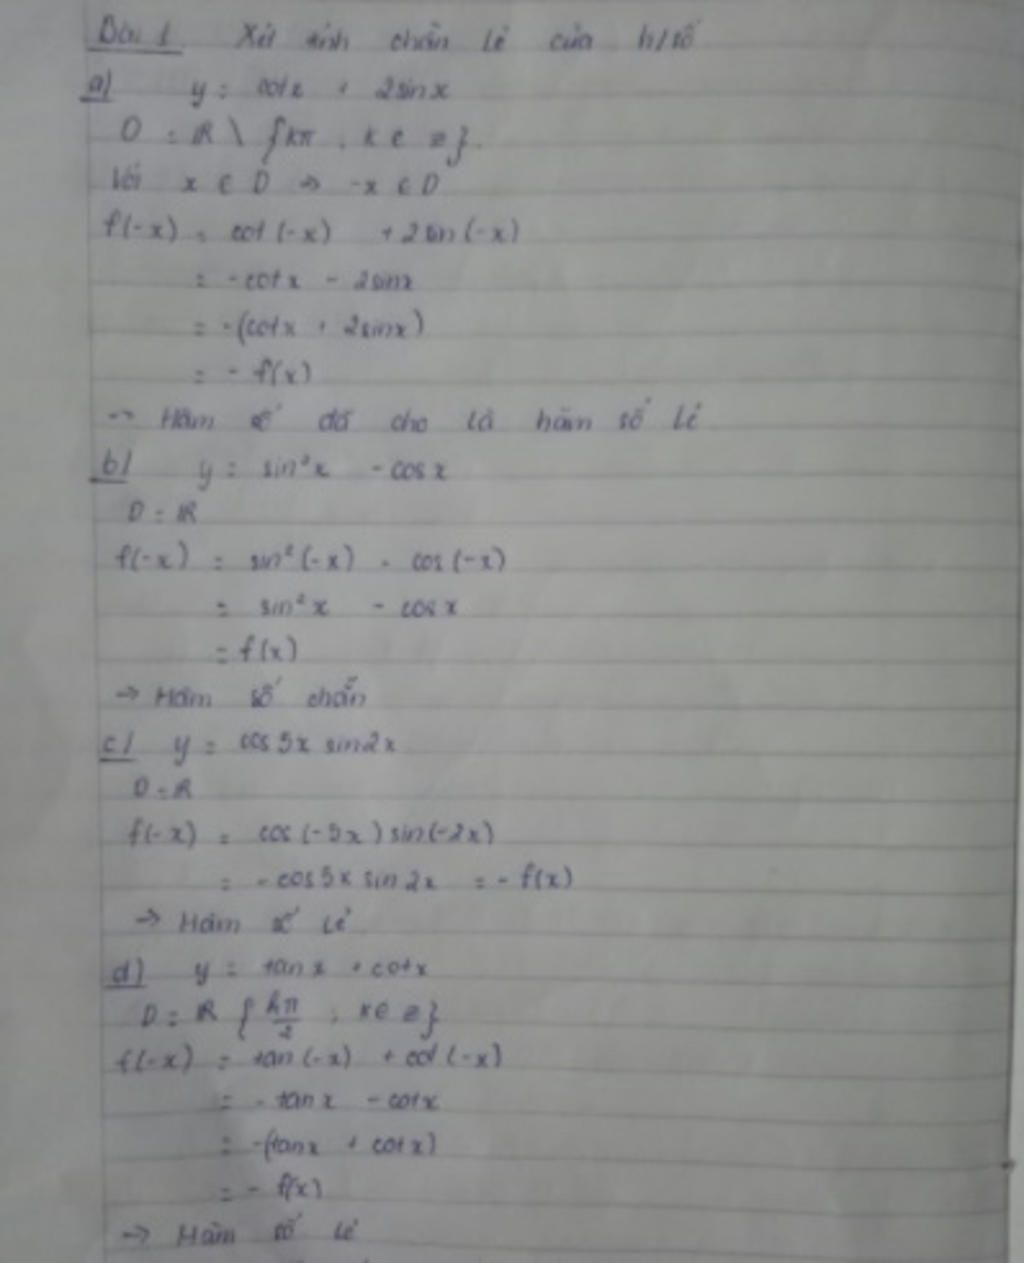 Bài 1 Xét tính chẵn lẻ của h/số
a) y = cotx + 2sinx
D = ℝ \ {kπ, k ∈ Z}.
Với x ∈ D => -x ∈ D
f(-x) = cot(-x) + 2sin(-x)
= -cotx - 2sinx
= -(cotx + 2sinx)
= - f(x)
-> Hàm số đã cho là hàm số lẻ
b) y = sin²x - cosx
D = ℝ
f(-x) = sin²(-x) - cos(-x)
= sin²x - cosx
= f(x)
-> Hàm số chẵn
c) y = cos5x sin2x
D = ℝ
f(-x) = cos(-5x) sin(-2x)
= -cos5x sin2x = - f(x)
-> Hàm số lẻ
d) y = tanx + cotx
D = ℝ {kπ/2, k ∈ Z}
f(-x) = tan(-x) + cot(-x)
= -tanx - cotx
= -(tanx + cotx)
= - f(x)
-> Hàm số lẻ